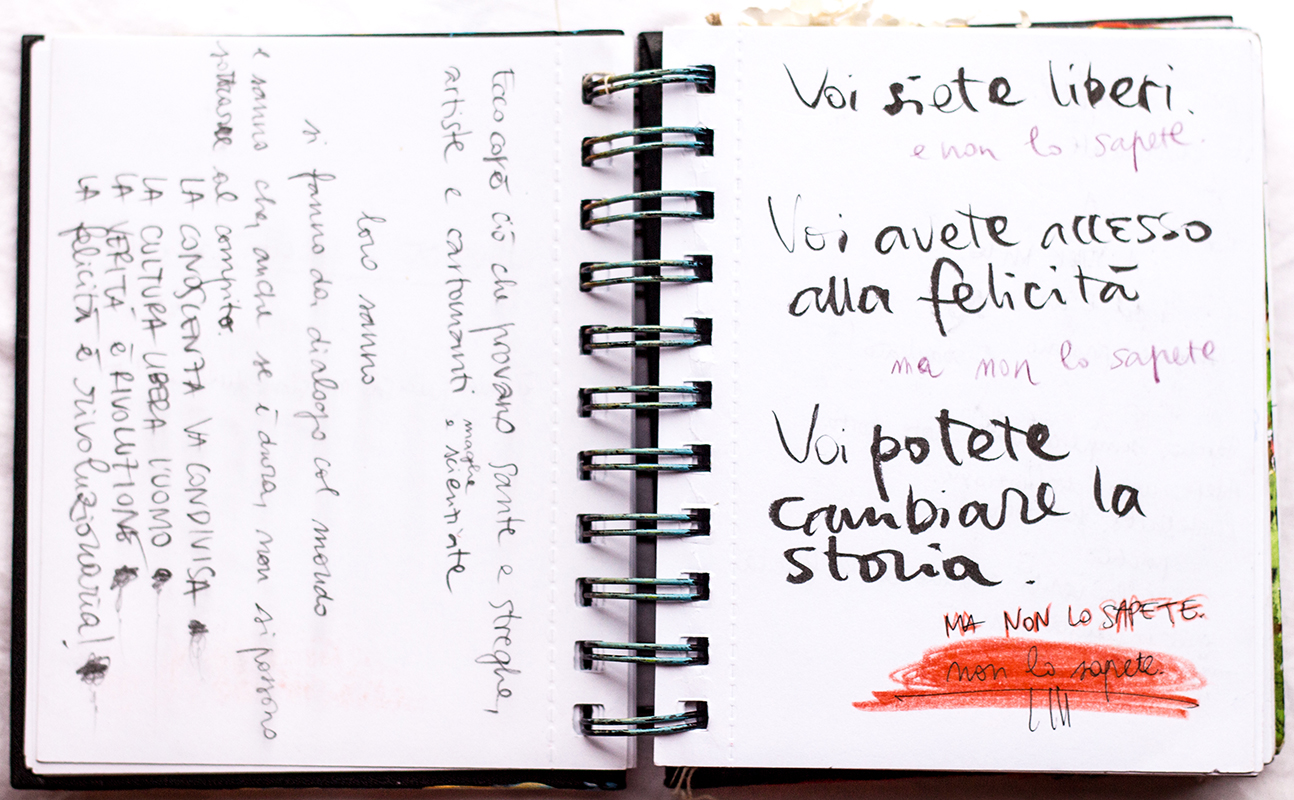 Ecco cos'è ciò che provano sante e streghe,
artiste e cartomanti maghe e scienziate
loro sanno
si fanno da dialogo col mondo
e sanno che, anche se è dura, non si possono
sottrarre al compito.
LA CONOSCENZA VA CONDIVISA
LA CULTURA LIBERA L'UOMO
LA VERITÀ È RIVOLUZIONE
LA felicità è rivoluzionaria!
Voi siete liberi.
e non lo sapete.
Voi avete accesso
alla felicità
ma non lo sapete
Voi potete
cambiare la
storia.
MA NON LO SAPETE.
non lo sapete.